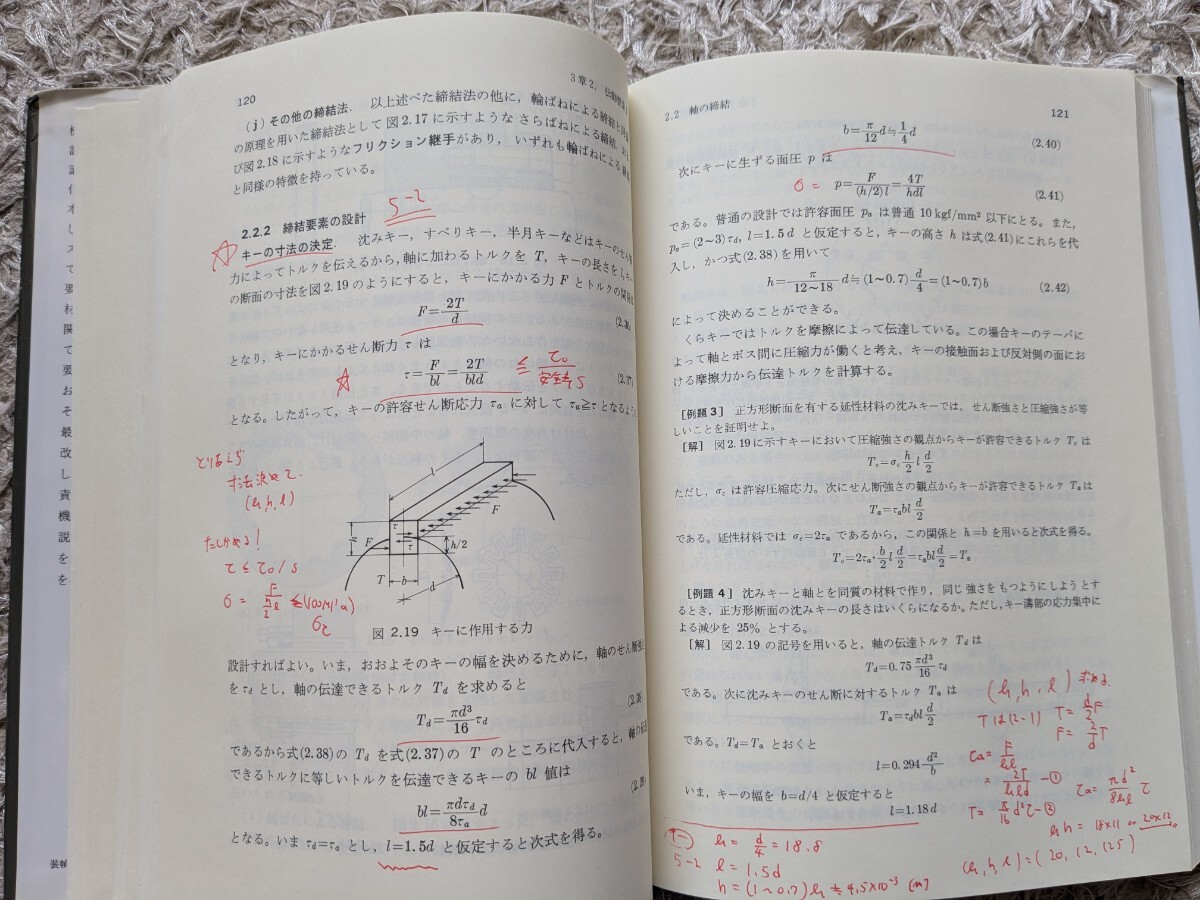 120
3章2.
(j) その他の締結法. 以上述べた締結法の他に, 輪ばねによる締結と同
の原理を用いた締結法として図2.17に示すような さらばねによる締結, およ
び図2.18に示すようなフリクション継手があり, いずれも輪ばねによる締
と同様の特徴を持っている。
5-2
2.2.2 締結要素の設計
☆ キーの寸法の決定. 沈みキー, すべりキー, 半月キーなどはキーのせん断
力によってトルクを伝えるから, 軸に加わるトルクを T, キーの長さを l, キー
の断面の寸法を図2.19のようにすると, キーにかかる力 F とトルクの関係は
F=2T/d (2.36)
となり, キーにかかるせん断力 τ は
☆ τ=F/bl=2T/bld ≦ τ₀/安全率S (2.37)
となる。したがって, キーの許容せん断応力 τa に対して τa≧τ となるように
とりあえず
寸法決めて.
(b,h,l)
たしかめる!
τ ≦ τ₀/s
σ = F/(h/2 l) ≦ (100MPa)
σc
l
F
τ
τ
F
h/2
h
T
b
d
図 2.19 キーに作用する力
設計すればよい。いま, おおよそのキーの幅を決めるために, 軸のせん断強
をτdとし, 軸の伝達できるトルク Td を求めると
Td=πd³/16 τd (2.38)
であるから式(2.38)の Td を式(2.37)の T のところに代入すると, 軸の伝達
できるトルクに等しいトルクを伝達できるキーの bl 値は
bl=πdτd/8τa d (2.39)
となる。いま τd=τa とし, l=1.5d と仮定すると次式を得る。
2.2 軸の締結
121
b=π/12 d≒1/4 d (2.40)
次にキーに生ずる面圧 p は
σ= p=F/(h/2)l=4T/hdl (2.41)
である。普通の設計では許容面圧 pa は普通 10 kgf/mm² 以下にとる。また,
pa=(2~3)τd, l=1.5d と仮定すると, キーの高さ h は式(2.41)にこれらを代
入し, かつ式(2.38)を用いて
h=π/12~18 d≒(1~0.7)d/4=(1~0.7)b (2.42)
によって決めることができる。
くらキーではトルクを摩擦によって伝達している。この場合キーのテーパに
よって軸とボス間に圧縮力が働くと考え, キーの接触面および反対側の面にお
ける摩擦力から伝達トルクを計算する。
[例題 3] 正方形断面を有する延性材料の沈みキーでは, せん断強さと圧縮強さが等
しいことを証明せよ。
[解] 図2.19に示すキーにおいて圧縮強さの観点からキーが許容できるトルク Tc は
Tc=σc h/2 l d/2
ただし, σc は許容圧縮応力。次にせん断強さの観点からキーが許容できるトルク Ta は
Ta=τa bl d/2
である。延性材料では σc=2τa であるから, この関係と h=b を用いると次式を得る。
Tc=2τa・b/2 l d/2=τa bl d/2=Ta
[例題 4] 沈みキーと軸とを同質の材料で作り, 同じ強さをもつようにしようとす
るとき, 正方形断面の沈みキーの長さはいくらになるか。ただし, キー溝部の応力集中に
よる減少を 25% とする。
[解] 図2.19 の記号を用いると, 軸の伝達トルク Td は
Td=0.75 πd³/16 τd
である。次に沈みキーのせん断に対するトルク Ta は
Ta=τd bl d/2
である。Td=Ta とおくと
l=0.294 d²/b
いま, キーの幅を b=d/4 と仮定すると
l=1.18 d
(b,h,l) 求める.
Tは(2-1) T=d/2 F
F=2/d T
τa=F/bl
=2T/bld -①
T=π/16 d³τ -②
τa=πd²/8bl τ
bh=18×11 or 20×12
(b,h,l)=(20,12,125)
5-2
b=d/4=18.8
l=1.5d
h=(1~0.7)b≒4.5×10⁻³ [m]
装幀